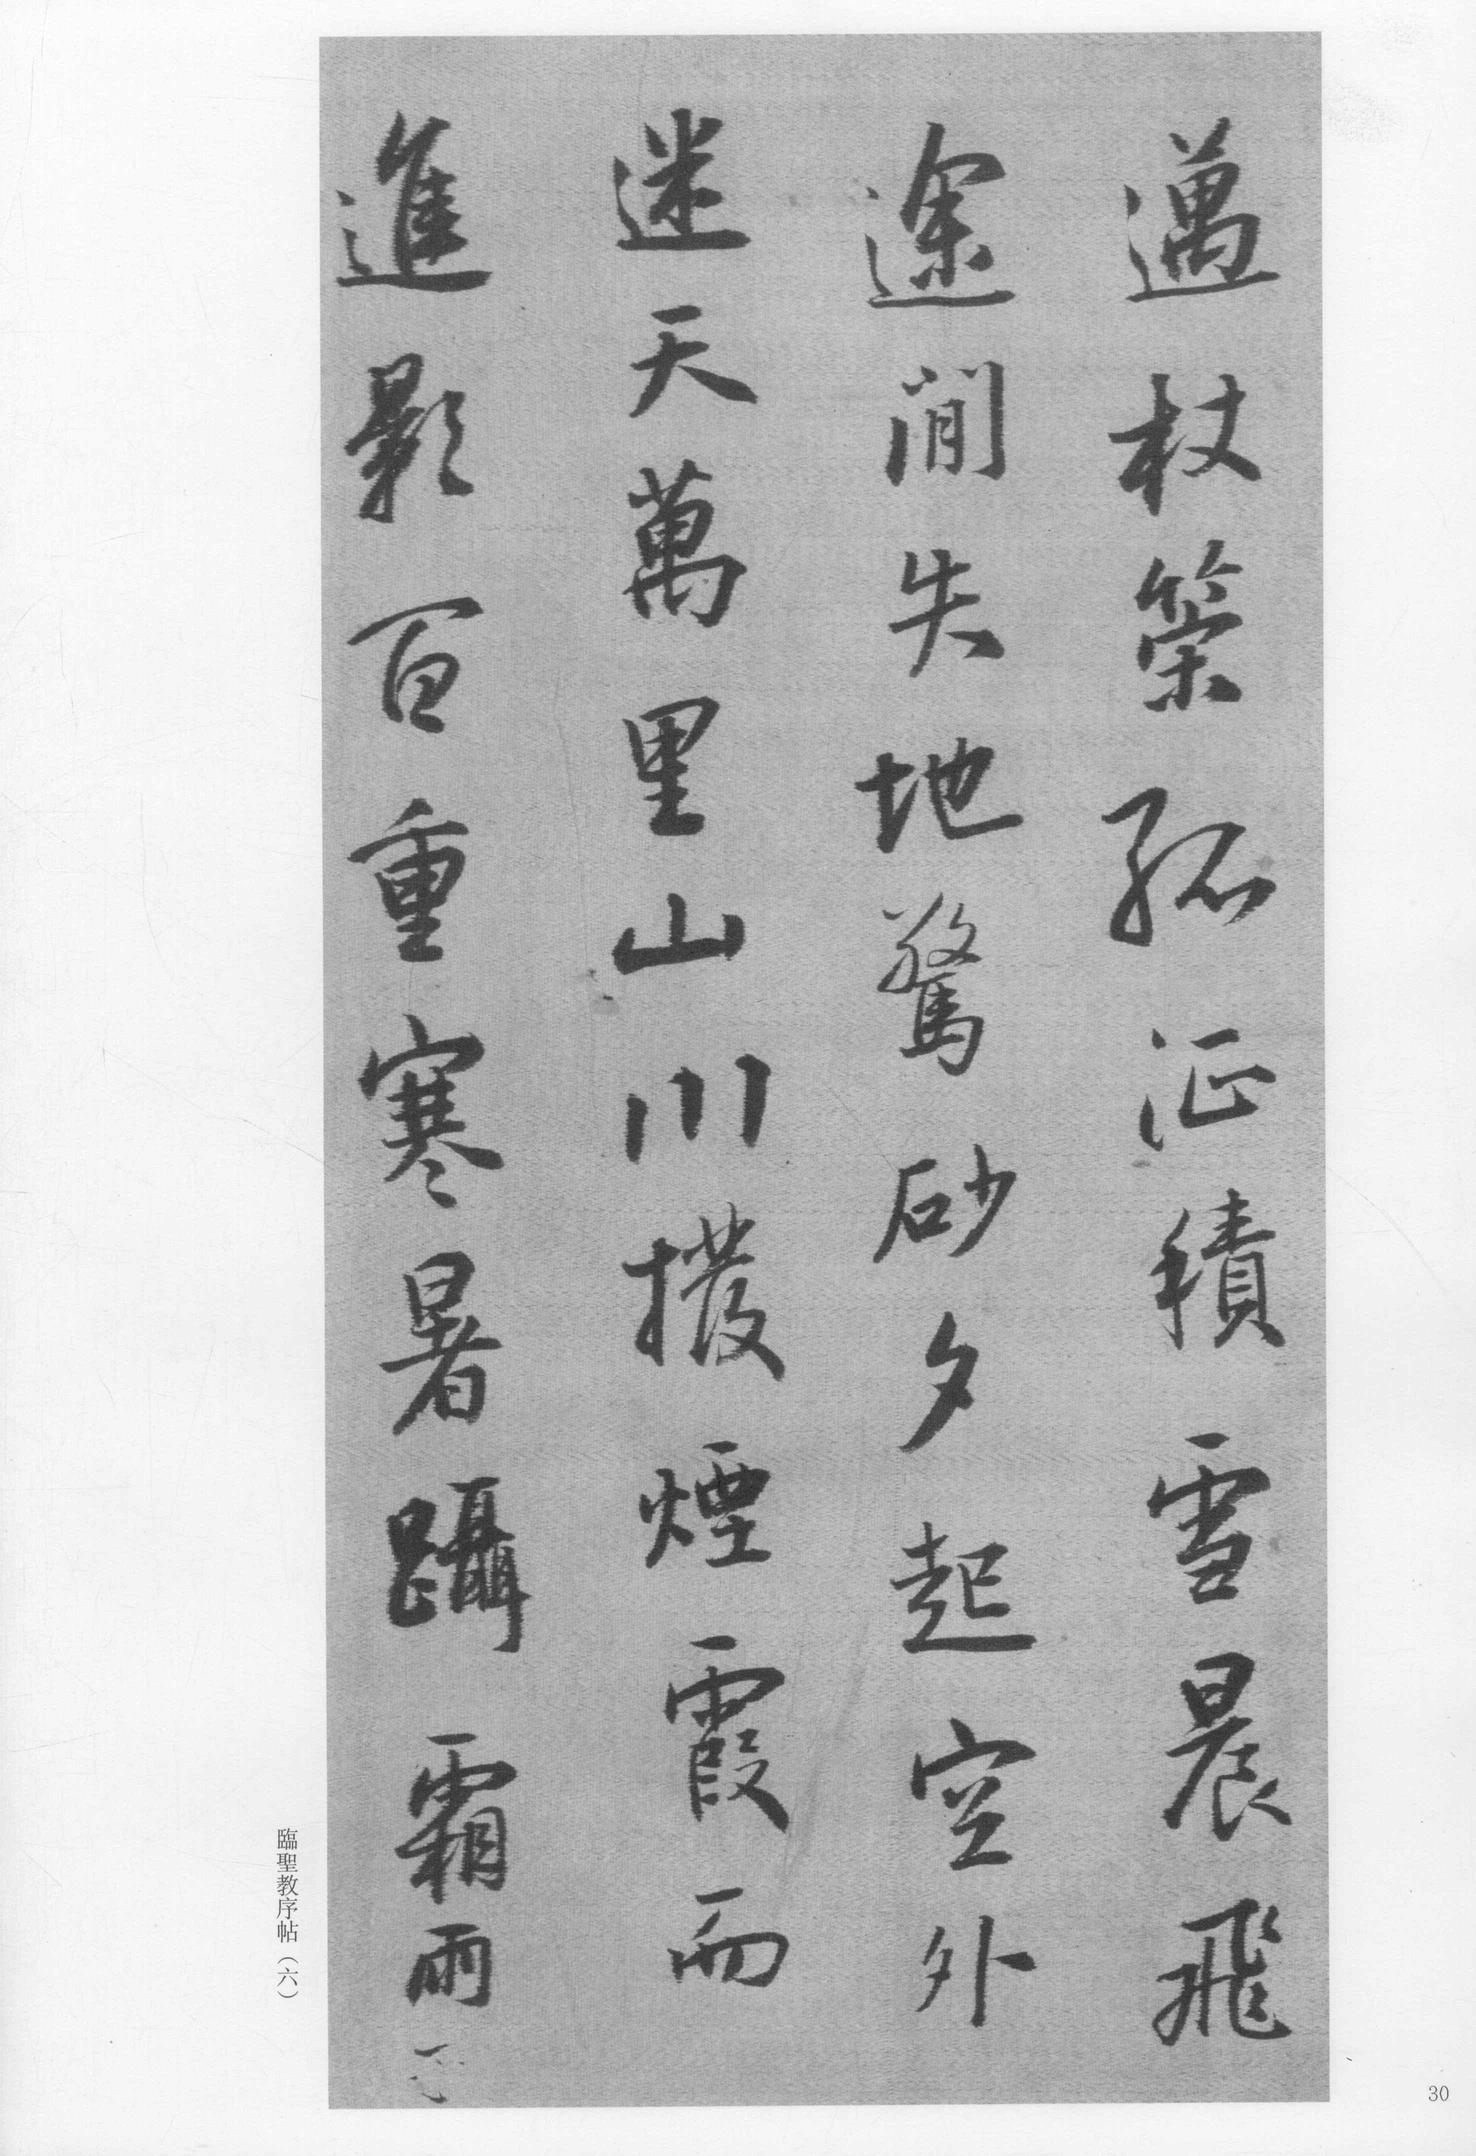 邁杖策孤征積雪晨飛
途間失地驚砂夕起空外
迷天萬里山川撥煙霞而
進影百重寒暑躡霜雨
臨聖教序帖（六）
30